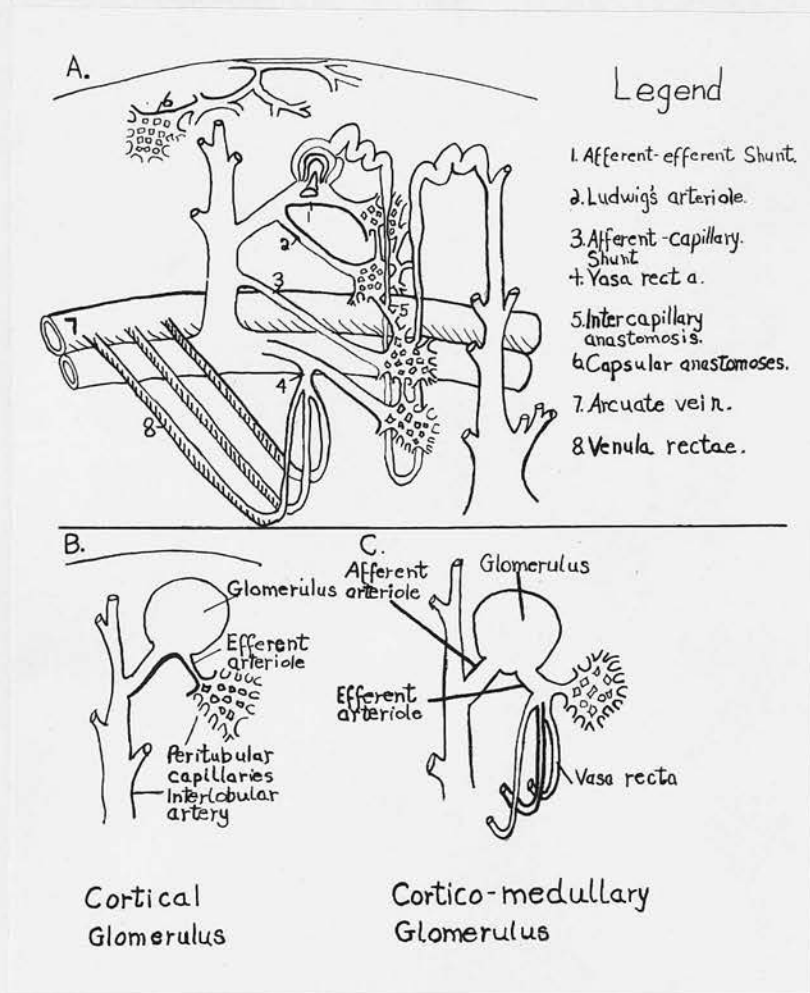 A.
Legend
1. Afferent-efferent Shunt.
2. Ludwig's arteriole.
3. Afferent-capillary.
Shunt
4. Vasa recta.
5. Intercapillary
anastomosis.
6. Capsular anastomoses.
7. Arcuate vein.
8. Venula rectae.
6
1
2
3
5
7
4
8
B.
Glomerulus
Efferent
arteriole
Peritubular
capillaries
Interlobular
artery
Cortical
Glomerulus
C.
Afferent
arteriole
Glomerulus
Efferent
arteriole
Vasa recta
Cortico-medullary
Glomerulus